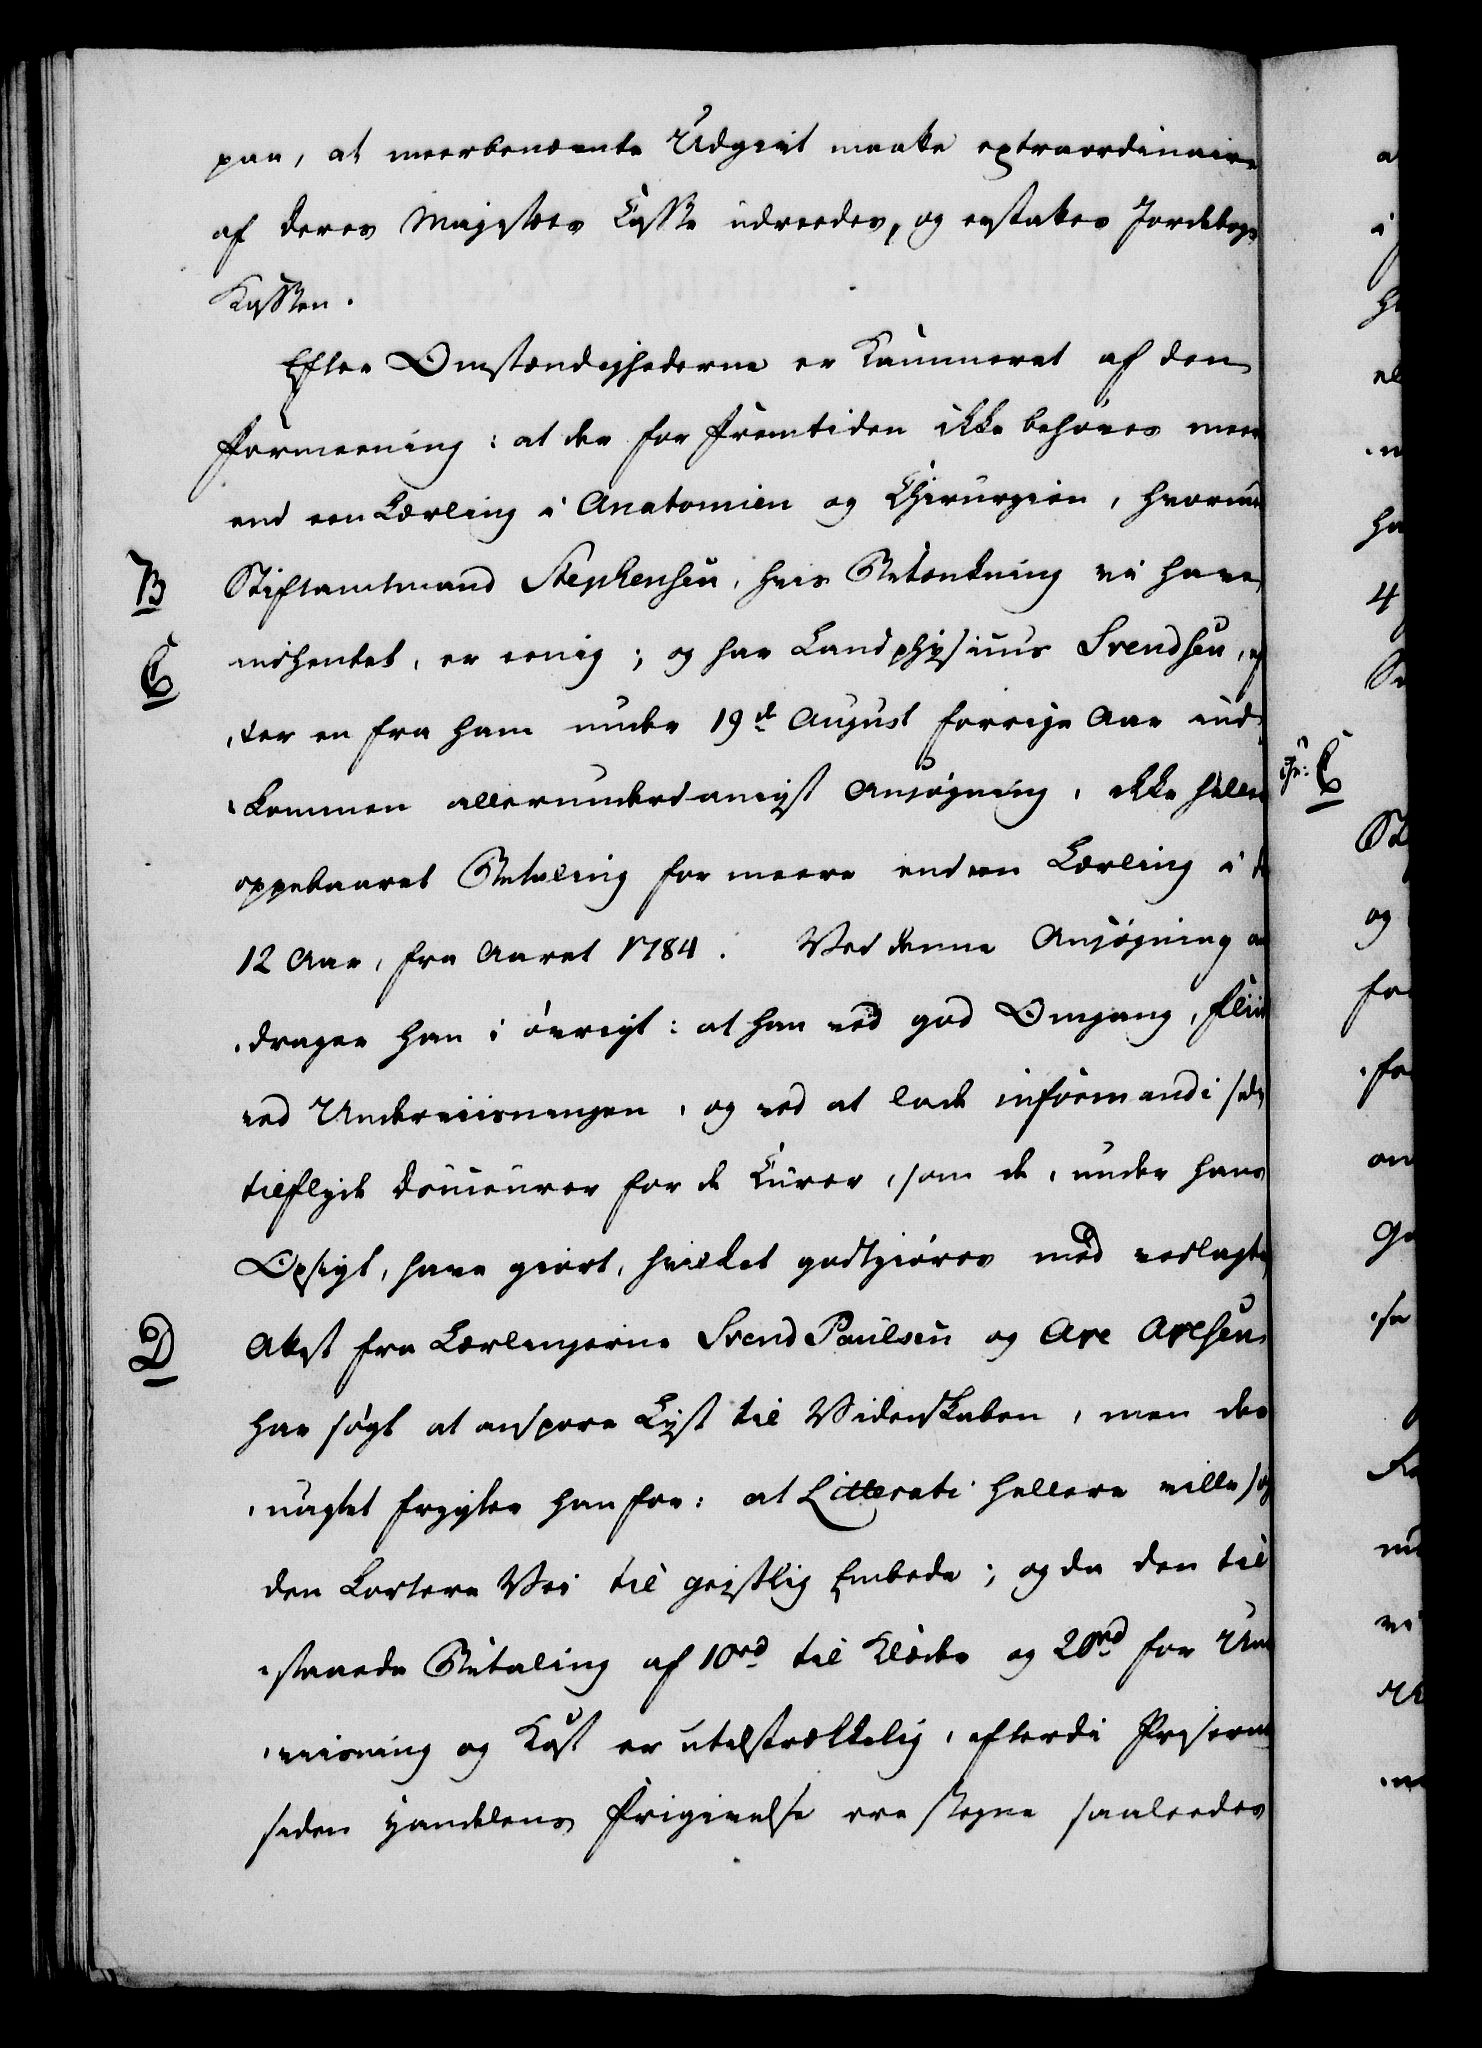 paa, at meerbenævnte Udgivt maatte extraordinaire
af Deres Majestæts Casse udreedes, og erstattes Jordebogs
Kassen.
Efter Omstændighederne er Kammeret af den
Formeening: at der for Fremtiden ikke behøves meer
end een Lærling i Anatomien og Chirurgien, hvorudi
B Stiftamtmand Stephensen, hvis Betænkning vi have
C indhentet, er eenig; og har Landphysicus Svendsen, ef
ter en fra ham under 19d August forrige Aar ind-
kommen allerunderdanigst Ansøgning, ikke heller
oppebaaret Betaling for meere end een Lærling i de
12 Aar, fra Aaret 1784. Ved denne Ansøgning an
drager han i øvrigt: at han ved god Omgang, Fliid
ved Underviisningen, og ved at lade informandi selv
tilflyde Douceurer for de Curer, som de, under hans
Opsigt, have giort, hvilket godtgiøres med vedlagte
D Attest fra Lærlingerne Svend Paulsen og Are Aresen
har søgt at anspore Lyst til Videnskaben, men des
uagtet frygter han for: at Litterati hellere ville søge
den kortere Vei til geistlig Embede; og da den til
staaede Betaling af 10 rd til Klæder og 20 rd for Un
viisning og Kost er utilstrækkelig, efterdi Priserne
siden Handelens Frigivelse ere stegne saaledes